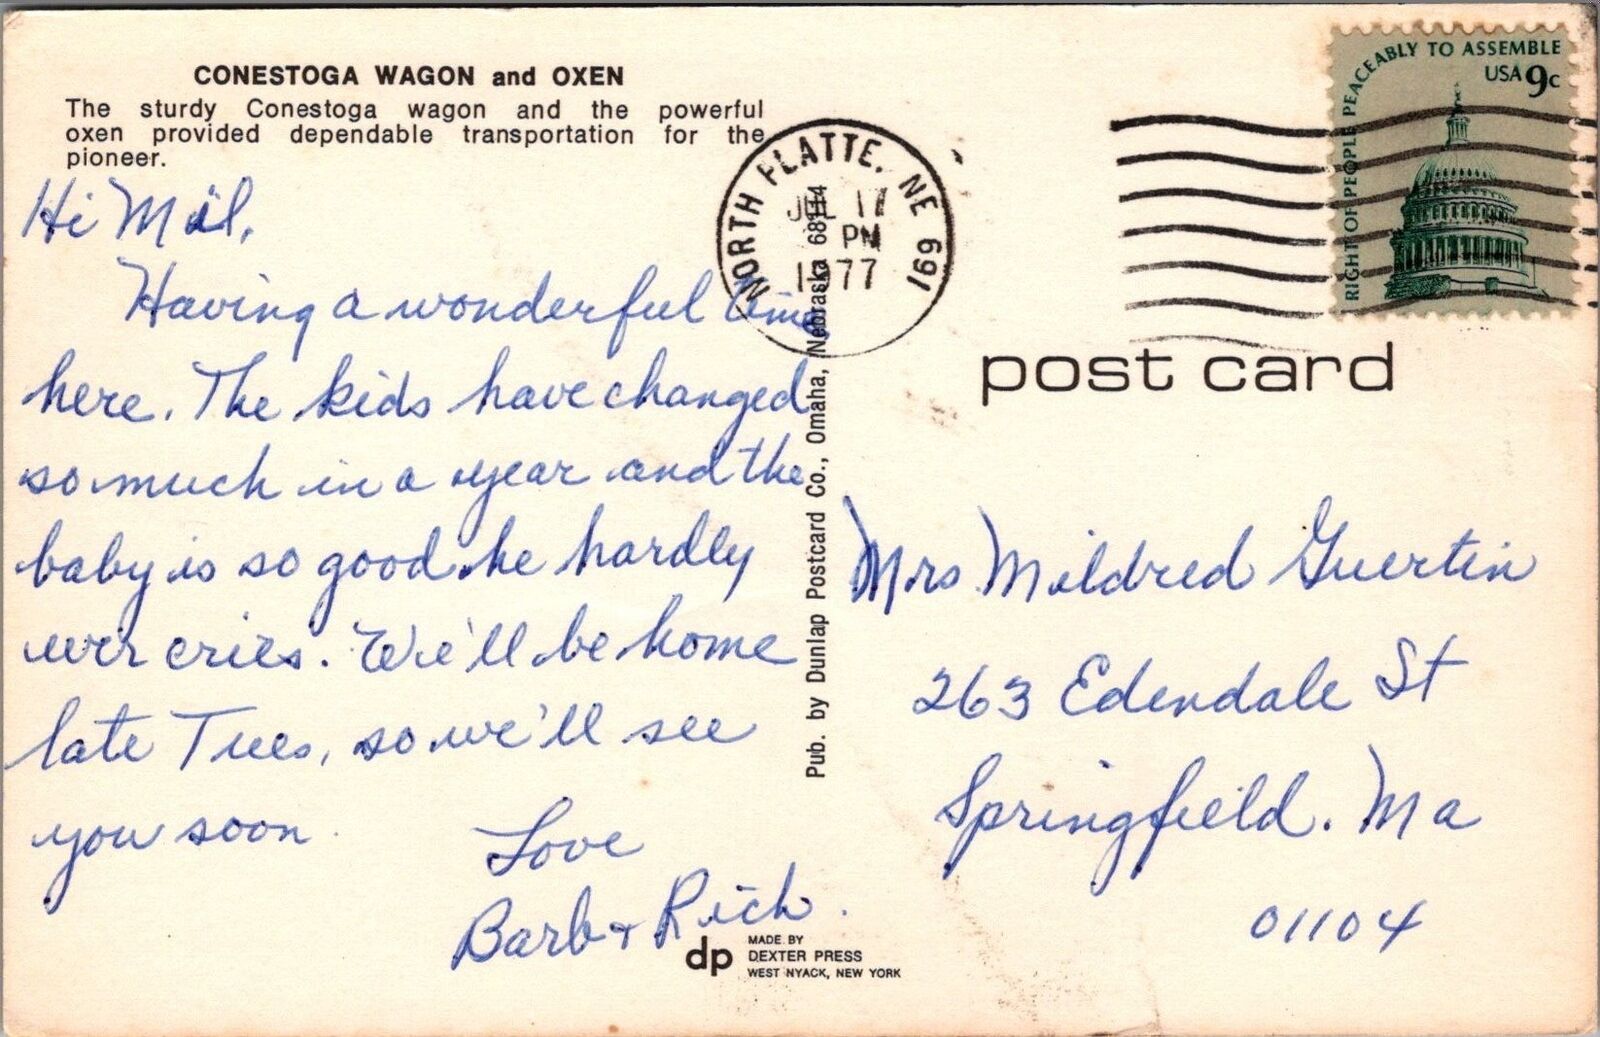 CONESTOGA WAGON and OXEN
The sturdy Conestoga wagon and the powerful
oxen provided dependable transportation for the
pioneer.
Hi Mil,
Having a wonderful time
here. The kids have changed
so much in a year and the
baby is so good he hardly
ever cries. We'll be home
late Tues, so we'll see
you soon
Love
Barb + Rich.
dp MADE BY
DEXTER PRESS
WEST NYACK, NEW YORK
Pub. by Dunlap Postcard Co., Omaha, Nebraska 68114
NORTH PLATTE, NE 691
JUL 17
PM
1977
RIGHT OF PEOPLE PEACEABLY TO ASSEMBLE
USA 9c
post card
Mrs Mildred Guertin
263 Edendale St
Springfield. Ma
01104